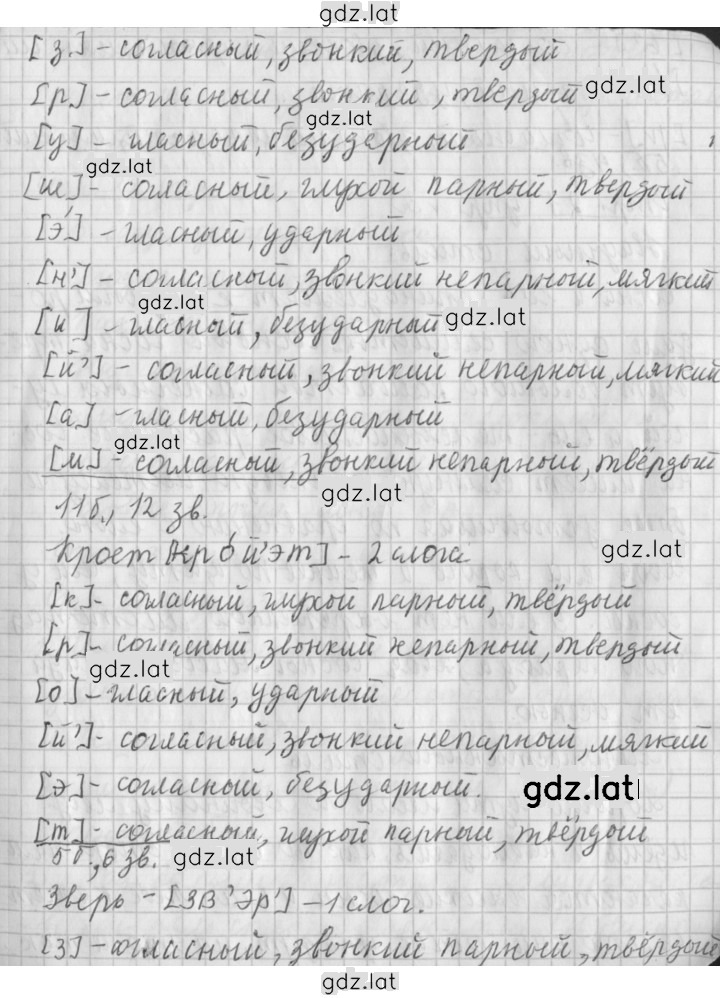 gdz.lat
[з] - согласный, звонкий, твердый
[р] - согласный, звонкий, твердый gdz.lat
gdz.lat
[у] - гласный, безударный
gdz.lat
[ш] - согласный, глухой парный, твердый
[э́] - гласный, ударный
[н'] - согласный, звонкий непарный, мягкий
gdz.lat
[и] - гласный, безударный gdz.lat
[й'] - согласный, звонкий непарный, мягкий
[а] - гласный, безударный
gdz.lat
[м] - согласный, звонкий непарный, твёрдый
gdz.lat
11б., 12 зв.
Кроет [кро́й'эт] - 2 слога gdz.lat
[к] - согласный, глухой парный, твёрдый
[р] - согласный, звонкий непарный, твердый
gdz.lat
[о] - гласный, ударный
[й'] - согласный, звонкий непарный, мягкий
[э] - согласный, безударный. gdz.lat
[т] - согласный, глухой парный, твёрдый
5б., 6 зв. gdz.lat
Зверь - [зв'эр'] - 1 слог.
[з] - согласный, звонкий парный, твёрдый
gdz.lat